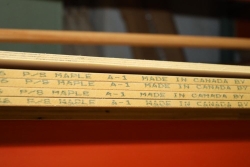 P/S MAPLE A-1 MADE IN CANADA BY
P/S MAPLE A-1 MADE IN CANADA BY
P/S MAPLE A-1 MADE IN CANADA BY
P/S MAPLE A-1 MADE IN CANADA BY